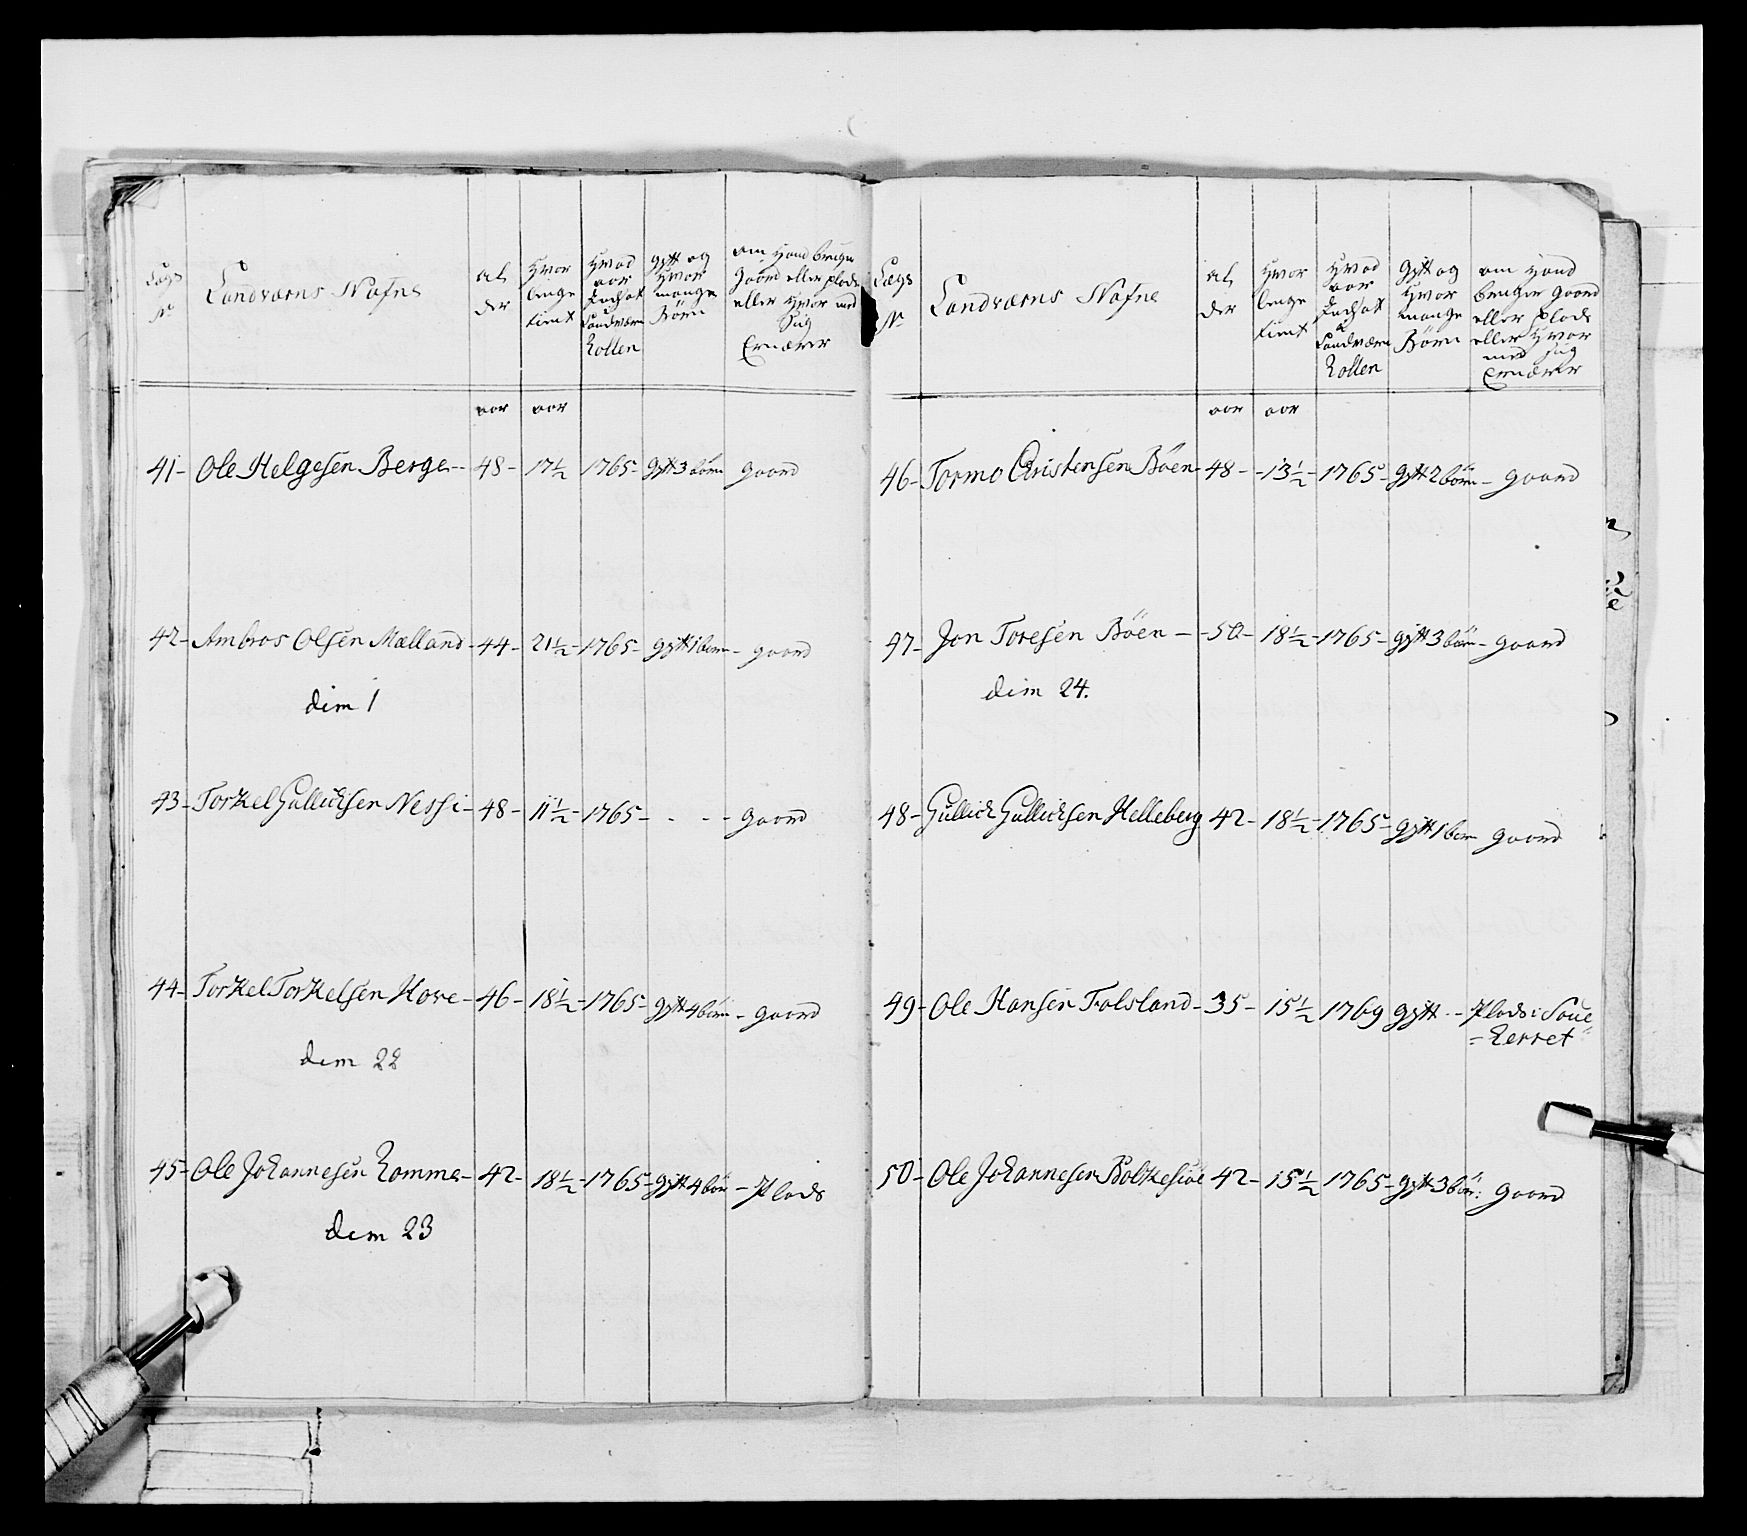 Lægs No
Landværns Nafne
Al der
Hvor lenge tient
Hvad aar Indsat i Landværn Rollen
gyft og Hvor mange Börn
om Hand bruger gaard eller plads eller Hvor med Sig Ernærer
aar aar
41- Ole Helgesen Berge-- 48- 17½ 1765- gyft 3 börn gaard
42- Ambros Olsen Mælland- 44- 21½- 1765- gyft 1 barn- gaard
dim 1
43- Torkel Gullichsen Nessi- 48- 11½- 1765- - - - gaard
44- Torkel Torkelsen Hove- 46- 18½- 1765- gyft 4 börn- gaard
dem 22
45- Ole Johannesen Romme- 42- 18½- 1765- gyft 4 bör- Plads
dem 23
Lægs No
Landværns Nafne
Al der
Hvor lenge tient
Hvad aar Indsat i Landværn Rollen
Gyft og Hvor mange Börn
om Hand bruger gaard eller plads eller Hvor med sig Ernærer
aar aar
46- Tormo Christensen Böen- 48- -13½- 1765- gyft 2 börn- gaard
47- Jon Toresen Böen- -50- 18½- 1765- gyft 3 börn- gaard
dim 24.
48- Gullich Gullichsen Helleberg 42- 18½- 1765- gyft 1 barn gaard
49- Ole Hansen Traksland- 35- 15½ 1769 gyft -- Plads i Soue
=Herret
50- Ole Johannesen Bolkesiöe 42- 15½ 1765- gyft 3 bör: gaard